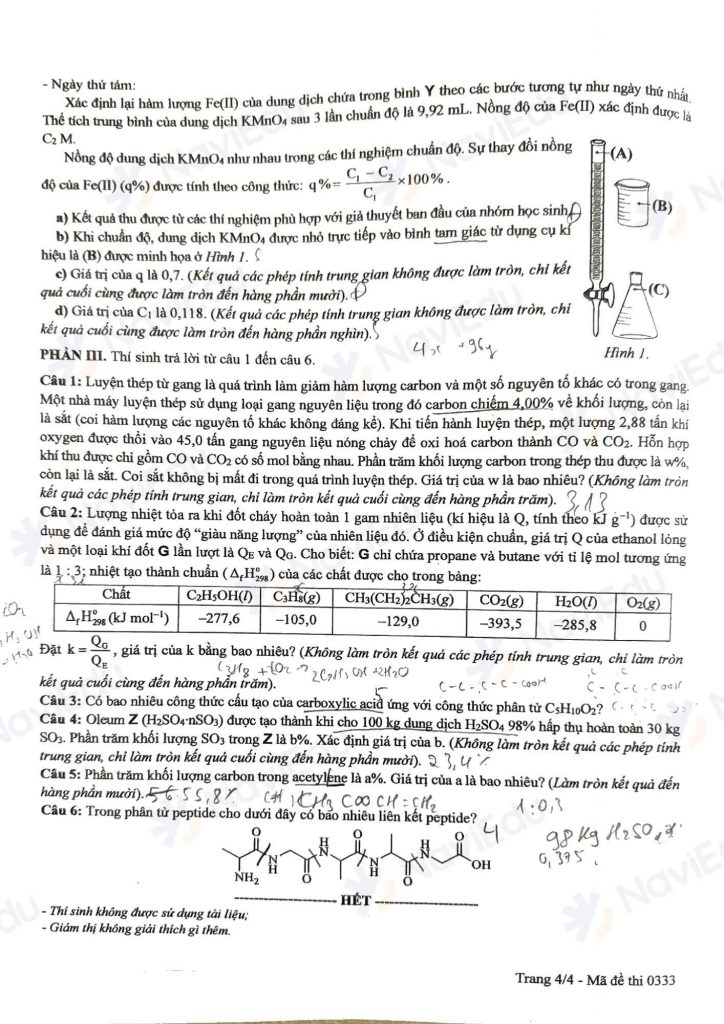 - Ngày thứ tám:
Xác định lại hàm lượng Fe(II) của dung dịch chứa trong bình Y theo các bước tương tự như ngày thứ nhất.
Thể tích trung bình của dung dịch KMnO₄ sau 3 lần chuẩn độ là 9,92 mL. Nồng độ của Fe(II) xác định được là
C₂ M.
Nồng độ dung dịch KMnO₄ như nhau trong các thí nghiệm chuẩn độ. Sự thay đổi nồng
độ của Fe(II) (q%) được tính theo công thức: q% = (C₁ − C₂)/C₁ ×100% .
a) Kết quả thu được từ các thí nghiệm phù hợp với giả thuyết ban đầu của nhóm học sinh.
b) Khi chuẩn độ, dung dịch KMnO₄ được nhỏ trực tiếp vào bình tam giác từ dụng cụ kí
hiệu là (B) được minh họa ở Hình 1. S
c) Giá trị của q là 0,7. (Kết quả các phép tính trung gian không được làm tròn, chỉ kết
quả cuối cùng được làm tròn đến hàng phần mười). Đ
d) Giá trị của C₁ là 0,118. (Kết quả các phép tính trung gian không được làm tròn, chỉ
kết quả cuối cùng được làm tròn đến hàng phần nghìn). S
(A)
(B)
(C)
Hình 1.
4x + 96y
PHẦN III. Thí sinh trả lời từ câu 1 đến câu 6.
Câu 1: Luyện thép từ gang là quá trình làm giảm hàm lượng carbon và một số nguyên tố khác có trong gang.
Một nhà máy luyện thép sử dụng loại gang nguyên liệu trong đó carbon chiếm 4,00% về khối lượng, còn lại
là sắt (coi hàm lượng các nguyên tố khác không đáng kể). Khi tiến hành luyện thép, một lượng 2,88 tấn khí
oxygen được thổi vào 45,0 tấn gang nguyên liệu nóng chảy để oxi hoá carbon thành CO và CO₂. Hỗn hợp
khí thu được chỉ gồm CO và CO₂ có số mol bằng nhau. Phần trăm khối lượng carbon trong thép thu được là w%,
còn lại là sắt. Coi sắt không bị mất đi trong quá trình luyện thép. Giá trị của w là bao nhiêu? (Không làm tròn
kết quả các phép tính trung gian, chỉ làm tròn kết quả cuối cùng đến hàng phần trăm). 3,13
Câu 2: Lượng nhiệt tỏa ra khi đốt cháy hoàn toàn 1 gam nhiên liệu (kí hiệu là Q, tính theo kJ g⁻¹) được sử
dụng để đánh giá mức độ “giàu năng lượng” của nhiên liệu đó. Ở điều kiện chuẩn, giá trị Q của ethanol lỏng
và một loại khí đốt G lần lượt là QE và QG. Cho biết: G chỉ chứa propane và butane với tỉ lệ mol tương ứng
là 1 : 3; nhiệt tạo thành chuẩn (ΔfH°298) của các chất được cho trong bảng:
Chất C₂H₅OH(l) C₃H₈(g) CH₃(CH₂)₂CH₃(g) CO₂(g) H₂O(l) O₂(g)
ΔfH°298 (kJ mol⁻¹) −277,6 −105,0 −129,0 −393,5 −285,8 0
Đặt k = QG/QE, giá trị của k bằng bao nhiêu? (Không làm tròn kết quả các phép tính trung gian, chỉ làm tròn
kết quả cuối cùng đến hàng phần trăm).
C-C-C-C-COOH
Câu 3: Có bao nhiêu công thức cấu tạo của carboxylic acid ứng với công thức phân tử C₅H₁₀O₂?
Câu 4: Oleum Z (H₂SO₄·nSO₃) được tạo thành khi cho 100 kg dung dịch H₂SO₄ 98% hấp thụ hoàn toàn 30 kg
SO₃. Phần trăm khối lượng SO₃ trong Z là b%. Xác định giá trị của b. (Không làm tròn kết quả các phép tính
trung gian, chỉ làm tròn kết quả cuối cùng đến hàng phần mười). 23,4%
Câu 5: Phần trăm khối lượng carbon trong acetylene là a%. Giá trị của a là bao nhiêu? (Làm tròn kết quả đến
hàng phần mười). 55,8% CH₃COOCH=CH₂
1:0,3
Câu 6: Trong phân tử peptide cho dưới đây có bao nhiêu liên kết peptide? 4
98kg H₂SO₄
0,375
O H N O H N O
NH₂ N H O N H O OH
HẾT
- Thí sinh không được sử dụng tài liệu;
- Giám thị không giải thích gì thêm.
Trang 4/4 - Mã đề thi 0333
NaviEdu